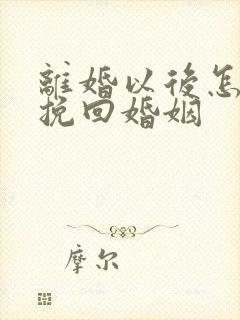 離婚以後怎
挽回婚姻
摩尔